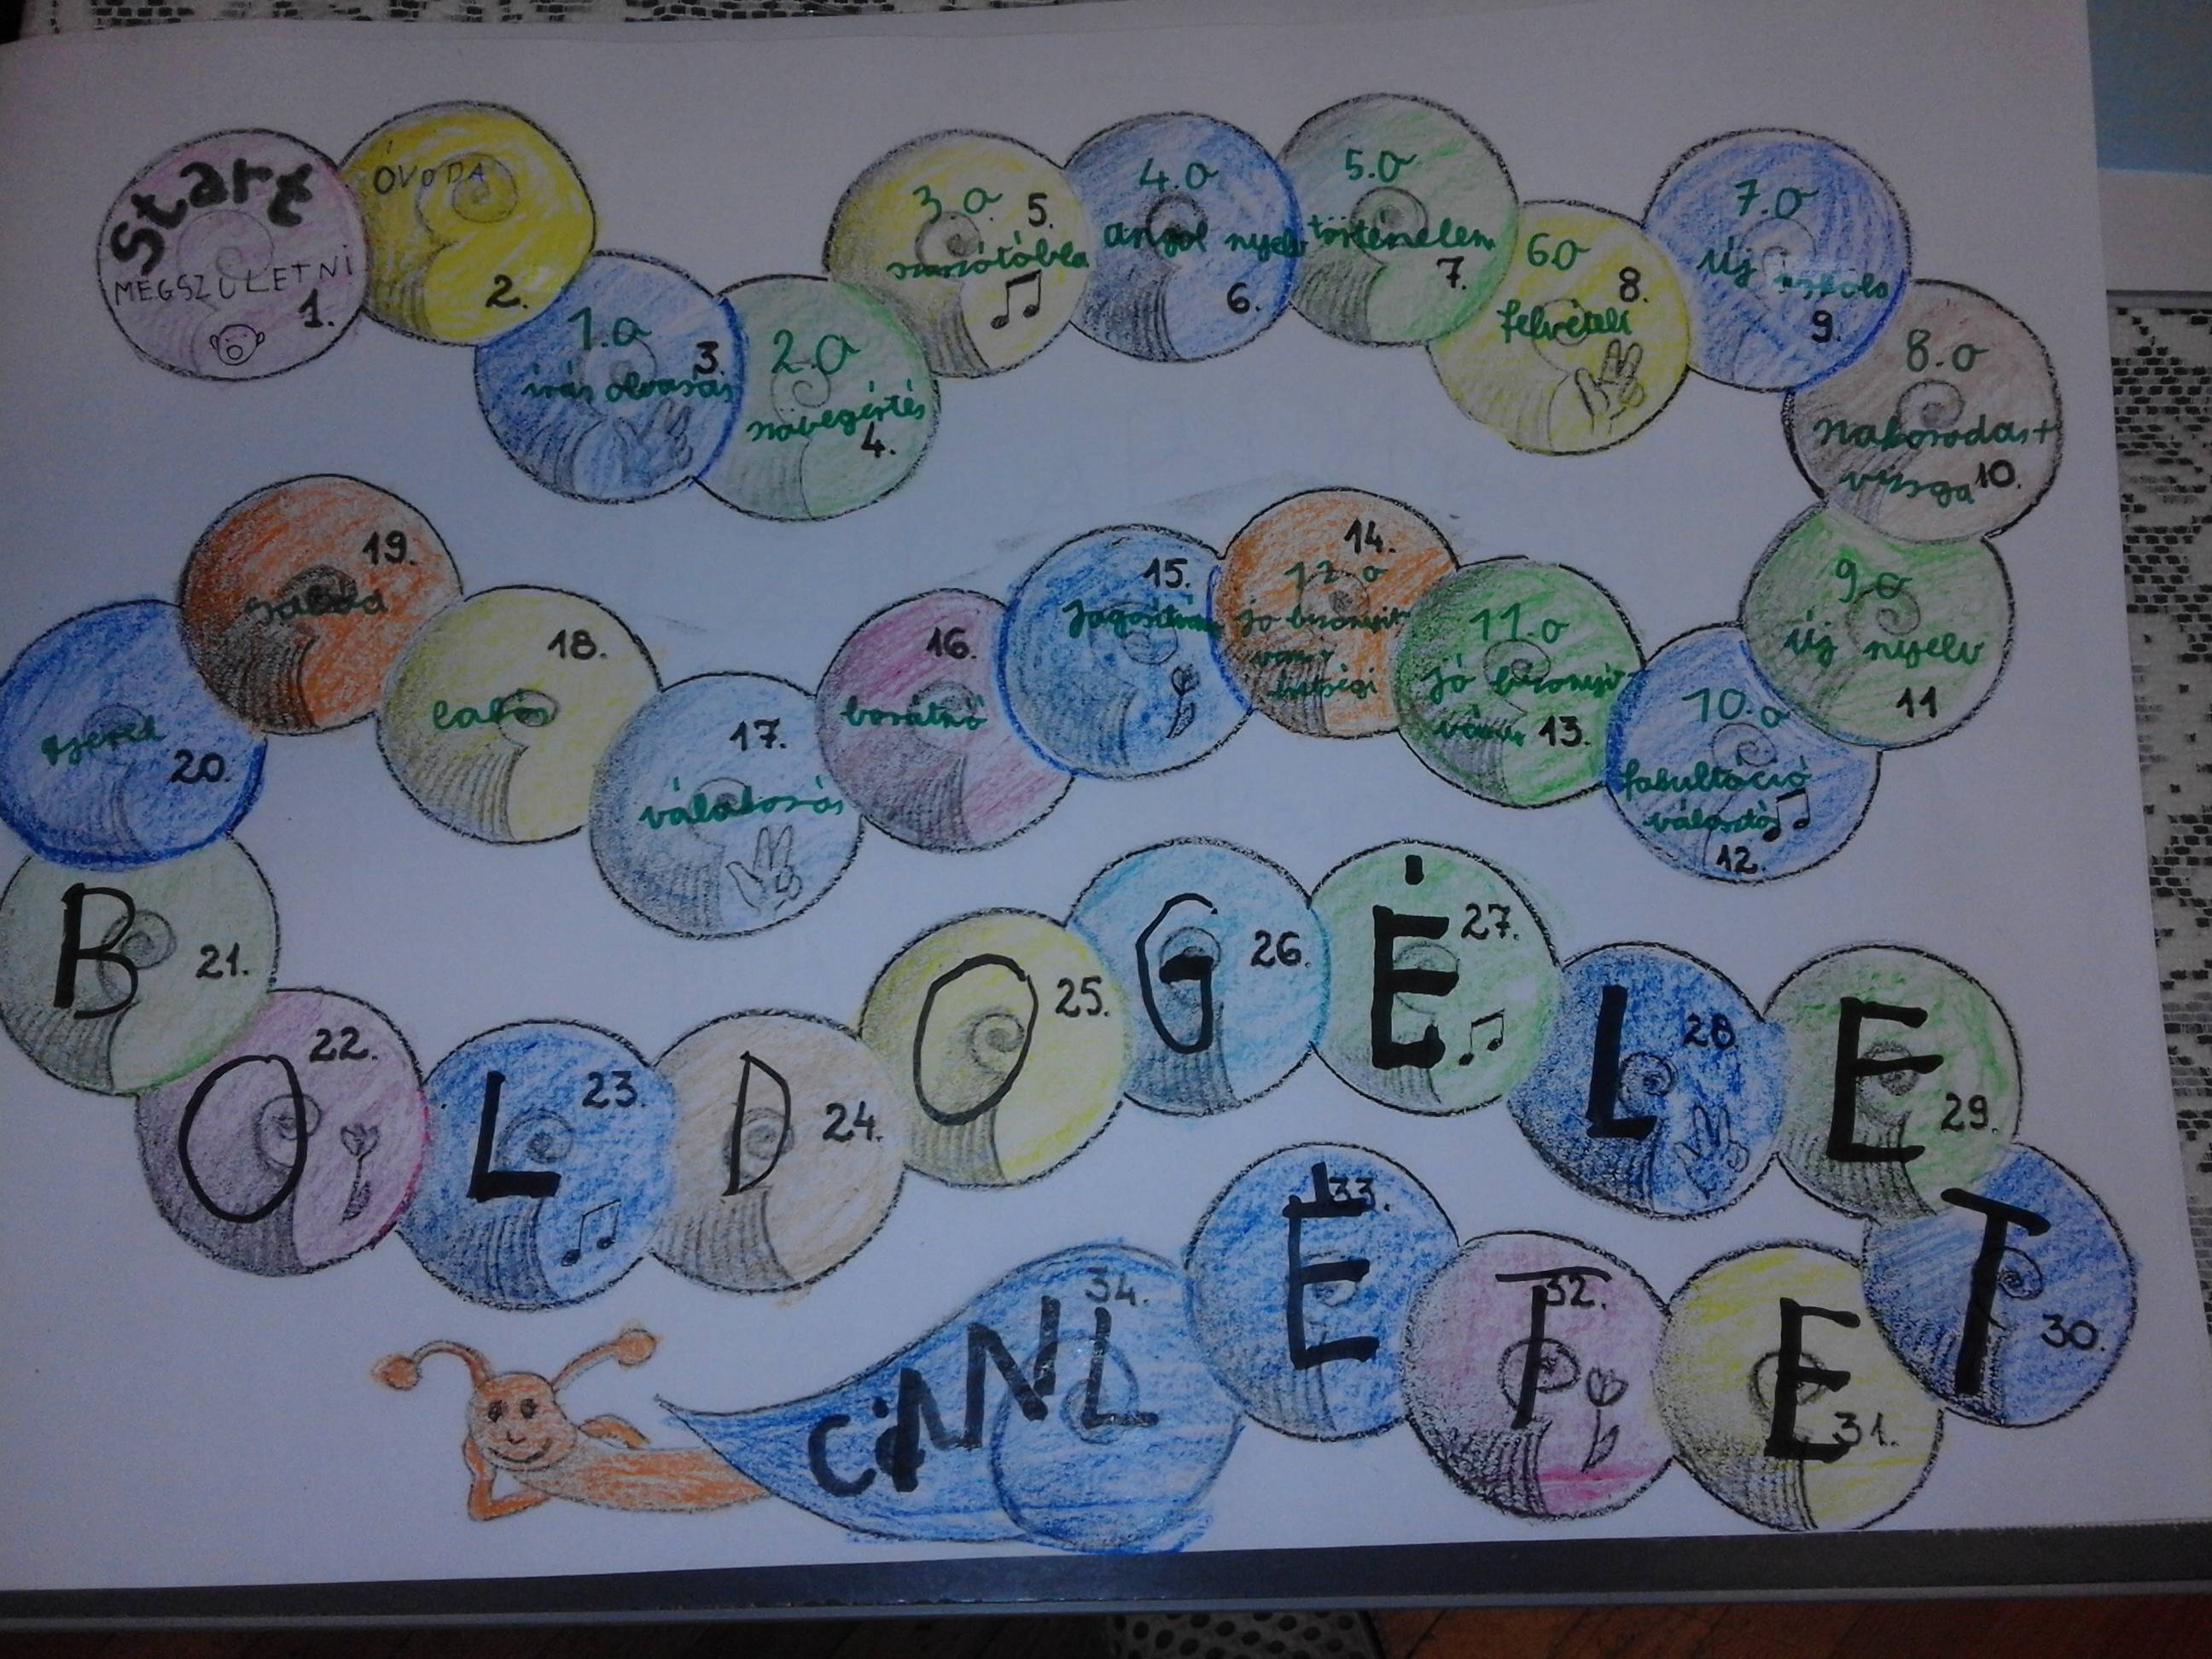 Start
MEGSZÜLETNI
1.
ÓVODA
2.
1.o
3.
írás olvasás
2.o
szövegértés
4.
3.o.
5.
szorzótábla
4.o
angol nyelv
6.
5.o
történelem
7.
6.o
8.
felvételi
7.o
új iskola
9.
8.o
szakosodás+
vizsga
10.
9.o
új nyelv
11
10.o
fakultáció
választó
12.
11.o
jó bizonyít-
vány
13.
14.
12.o
jó bizonyít
vány
15.
jogosítvány
16.
barátnő
17.
18.
lakás
19.
20.
gyerek
B
21.
O
22.
L
23.
D
24.
O
25.
G
26.
É
27.
L
28
E
29.
T
30.
E
31.
T
32.
É
33.
34.